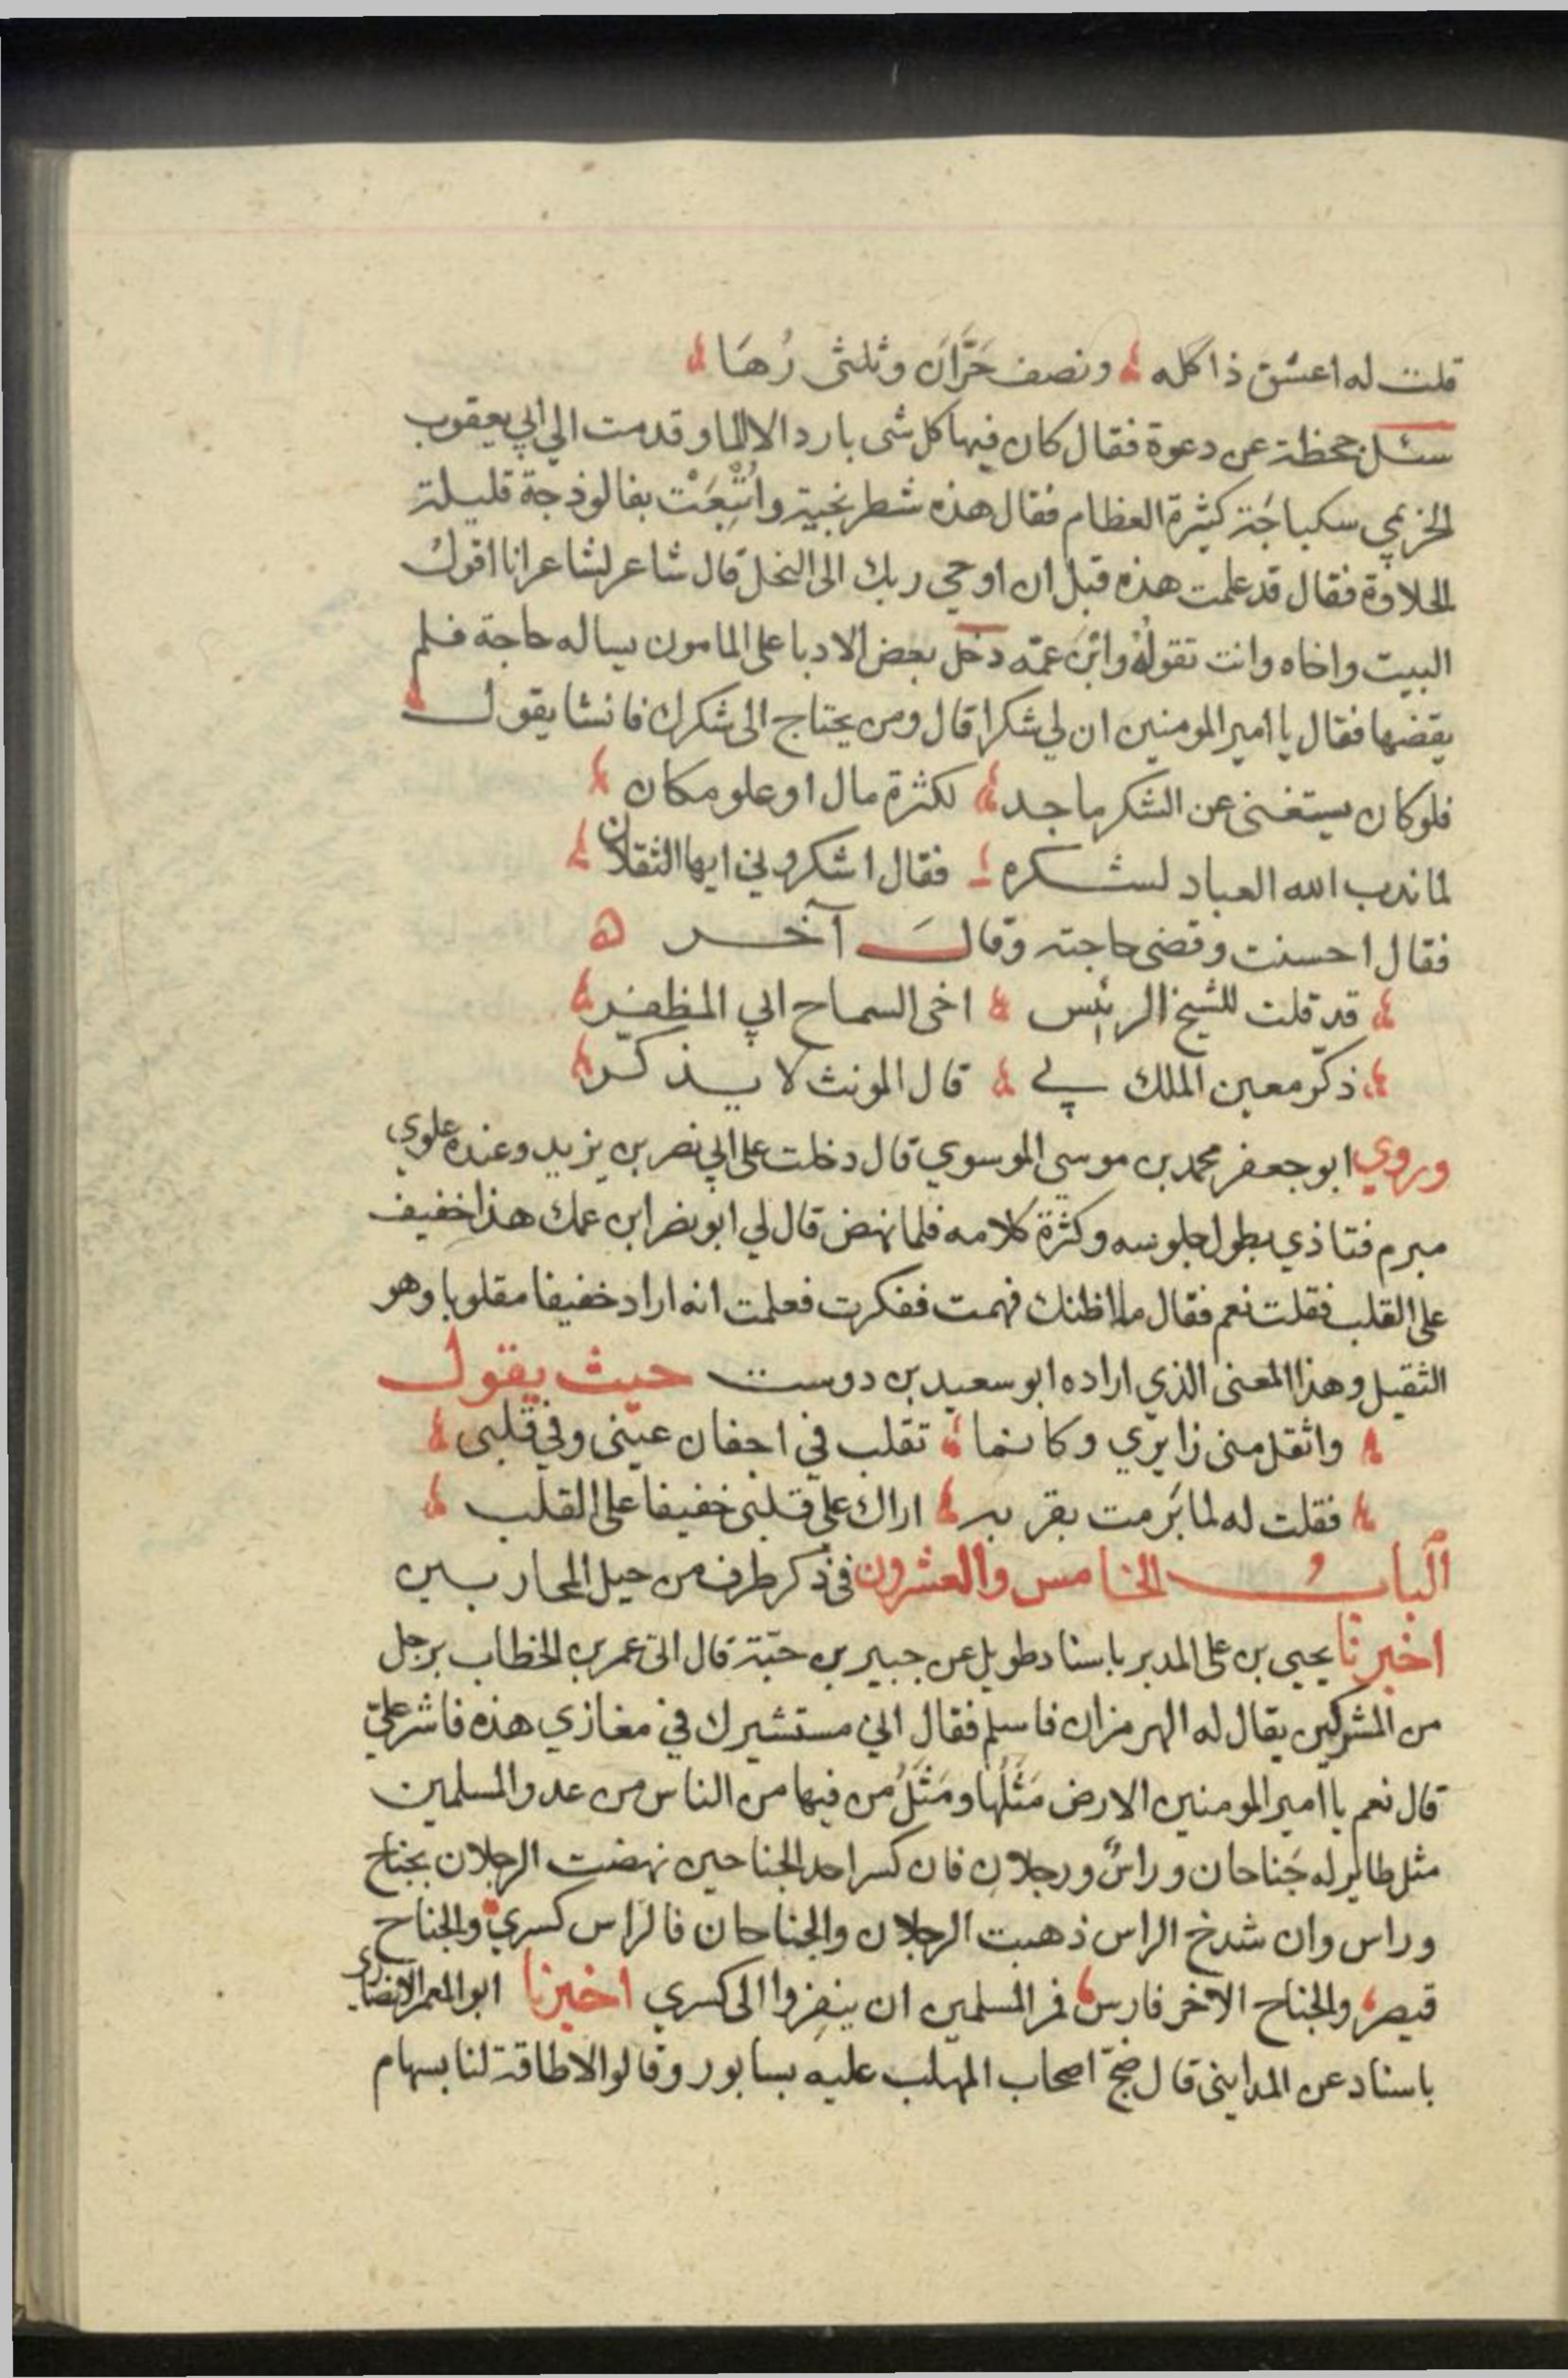 قلت له اعشق ذا كله ونصف حَرَّان وثلثى رُهَا
سئل جحظة عن دعوة فقال كان فيها كل شى بارد الا الما وقدمت الي ابي يعقوب
الخزيمي سكباجَة كثيرة العظام فقال هذه شطرنجية واتْبِعَتْ بفالوذجة قليلة
الحلاوة فقال قد علمت هذه قبل ان اوحي ربك الى النحل قال شاعر لشاعر انا اقول
البيت واخاه وانت تقوله وابن عمّه دخل بعض الادبا على المامون يساله حاجة فلم
يقضها فقال يا امير المومنين ان لي شكرا قال ومن يحتاج الى شكرك فانشا يقول
فلو كان يستغنى عن الشكر ماجد لكثرة مال او علو مكان
لما ندب الله العباد لشكره فقال اشكروني ايها الثقلان
فقال احسنت وقضى حاجته وقالَ آخر ه
قد قلت للشيخ الرئيس اخى السماح ابي المظفر
ذكّر معين الملك بي قال المونث لا يذكّر
وروي ابو جعفر محمد بن موسى الموسوي قال دخلت على ابي نصر بن يزيد وعنده علوي
مبرم فتاذي بطول جلوسه وكثرة كلامه فلما نهض قال لي ابو نصر ابن عمك هذا خفيف
على القلب فقلت نعم فقال ما اظنك فهمت ففكرت فعلمت انه اراد خفيفا مقلوبا وهو
الثقيل وهذا المعنى الذي اراده ابو سعيد بن دوست حيث يقول
واثقل منى زايري وكانما تقلب في اجفان عينى وفي قلبى
فقلت له لما بَرمت بقربه اراك على قلبى خفيفا على القلب
الباب الخامس والعشرون في ذكر طرف من حيل المحاربين
اخبرنا يحيى بن على المدير باسناد طويل عن جبير بن حيّة قال اتى عمر بن الخطاب برجل
من المشركين يقال له الهرمزان فاسلم فقال اني مستشيرك في مغازي هذه فاشر علي
قال نعم يا امير المومنين الارض مَثَلُها ومَثَلُ من فيها من الناس من عدو المسلمين
مثل طاير له جَناحان وراسٌ ورجلانِ فان كسر احد الجناحين نهضت الرجلان بجناح
وراس وان شدخ الراس ذهبت الرجلان والجناحان فالراس كسري والجناح
قيصر والجناح الاخر فارس فمر المسلمين ان ينفروا الى كسري اخبرنا ابو المعمر الانصاري
باسناد عن المداينى قال ضجّ اصحاب المهلب عليه بسابور وقالوا لا طاقة لنا بسهام